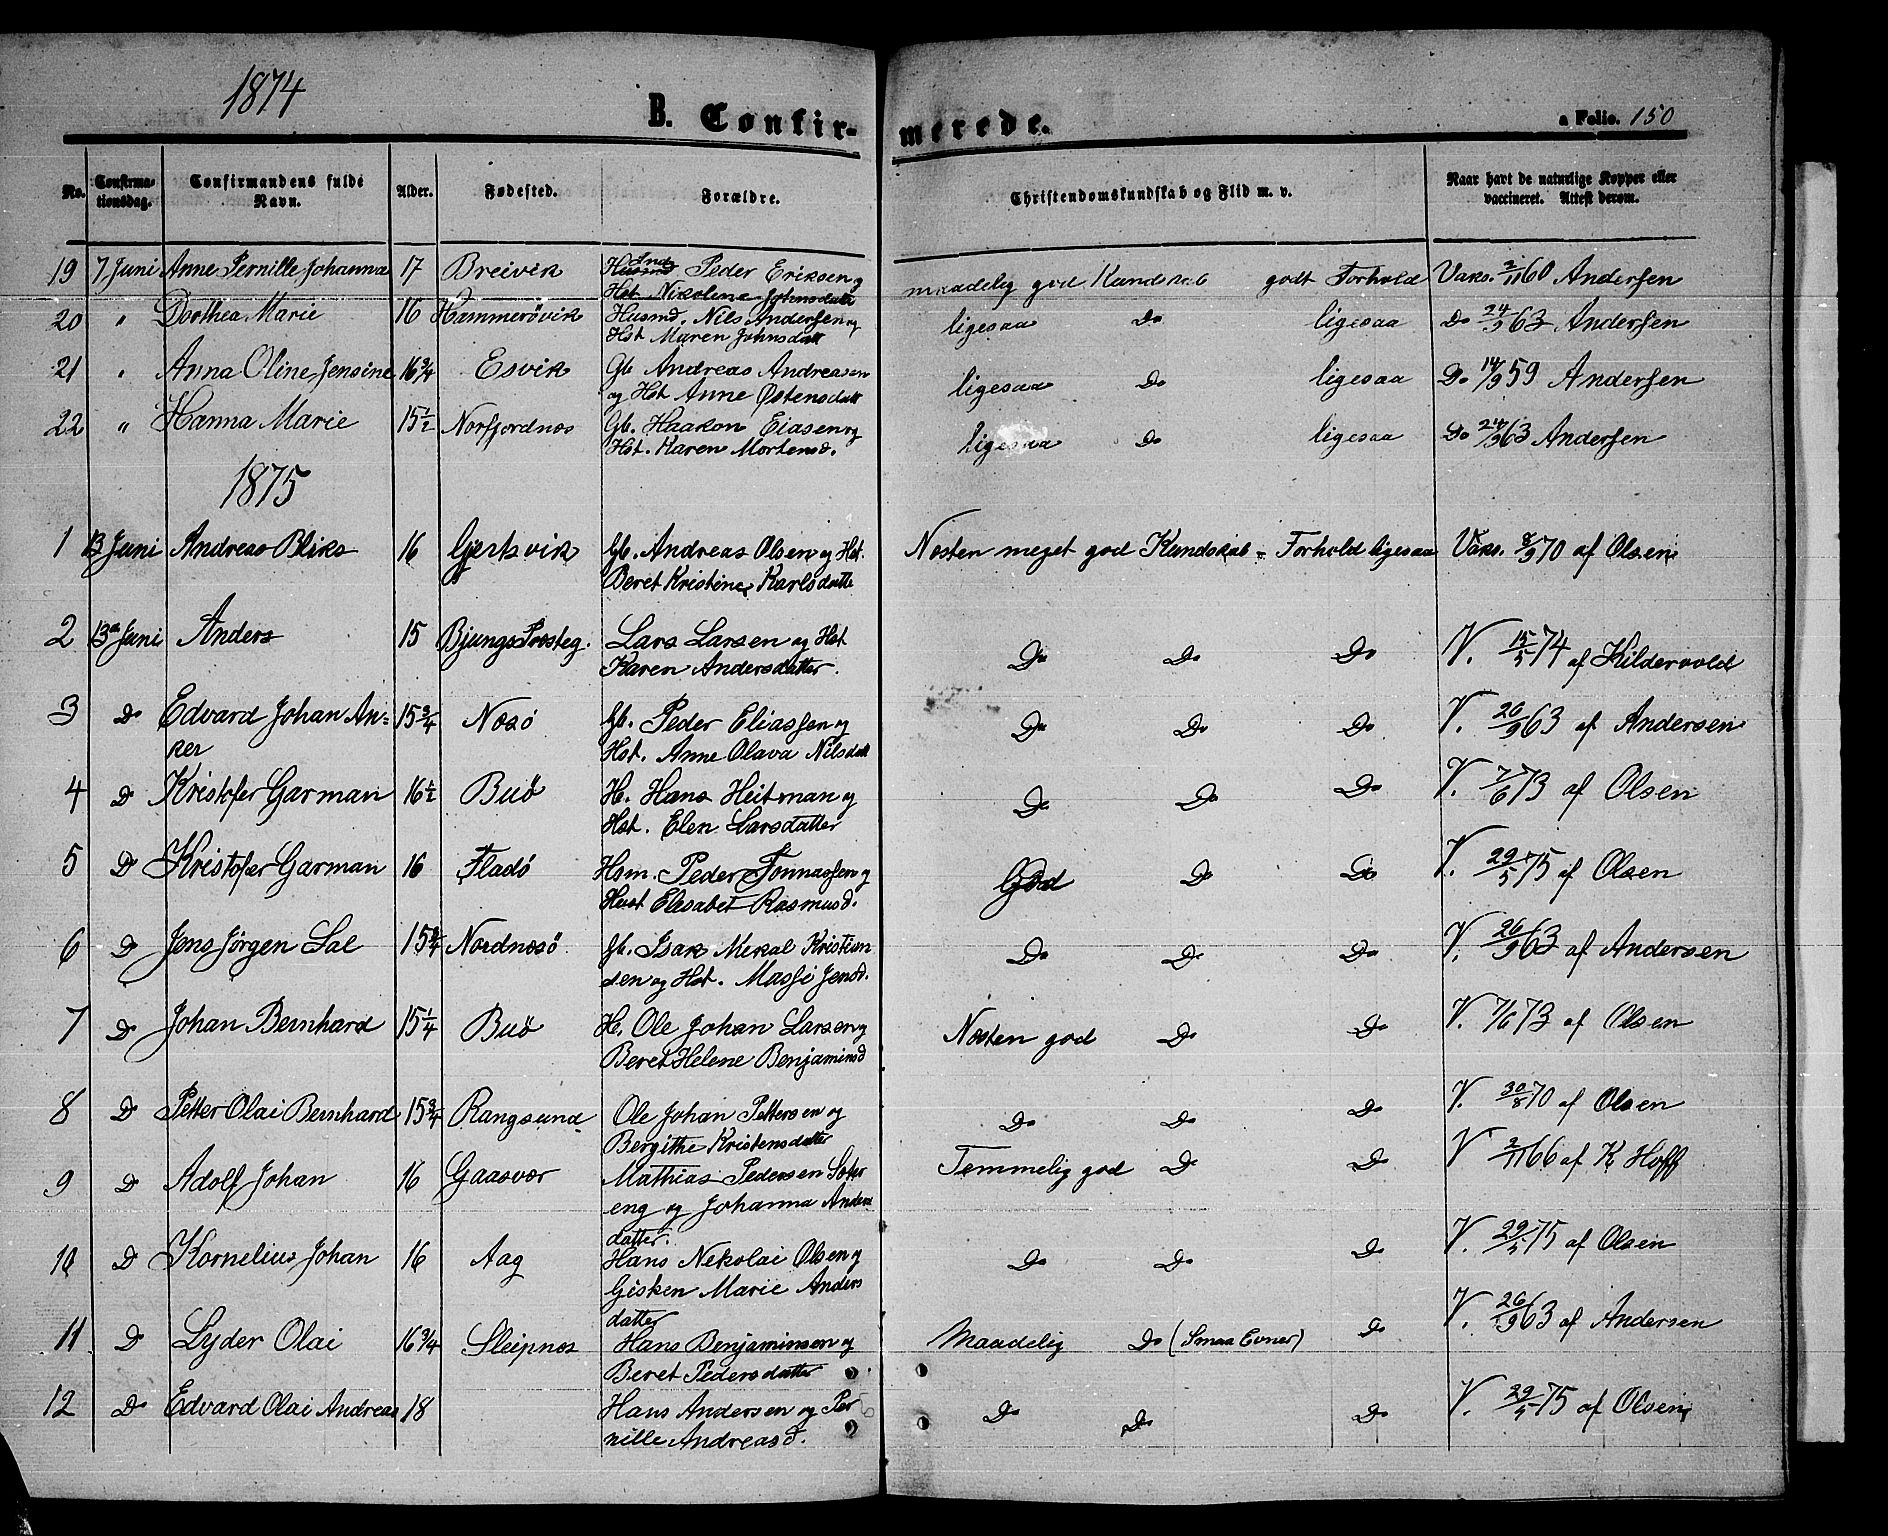 1874
B. Confir-
merede.
a Folio. 150
No. Confirma-tionsdag. Confirmandens fulde Navn. Alder. Fødested. Forældre. Christendomskundskab og Flid m. v. Naar havt de naturlige Kopper eller vaccineret. Attest derom.
19 7 Juni Anne Pernille Johanna 17 Breivik Husmd Ind Peder Eriksen og maadelig god Kundskab godt Forhold Vaks. 2/11 60 Andersen
Hst Nikolene Johnsdatt
20 " Dorthea Marie 16 Hammerövik Husmd. Nils Andersen og ligesaa Do ligesaa Do 24/9 63 Andersen
Hst Maren Johnsdatt
21 " Anna Oline Jensine 16 3/4 Esvik Gb. Andreas Andreasen ligesaa Do ligesaa Do 14/9 59 Andersen
og Hst Anne Østensdatt
22 " Hanna Marie 15 1/2 Norfjordnæs Gb. Haakon Eiasen og ligesaa Do ligesaa Do 24/9 63 Andersen
Hst. Karen Mortensd.
1875
1 13 Juni Andreas Bliks 16 Gjertsvik Gb. Andreas Olsen og Hst. Næsten meget god Kundskab - Forhold ligesaa Vaks. 8/9 70 af Olsen
Beret Kristine Karlsdatte
2 13de Juni Anders 15 Bjungs Præsteg. Lars Larsen og Hst Do Do Do V. 15/5 74 af Kildervold
Karen Andersdatter.
3 Do Edvard Johan An- 15 3/4 Næsö Gb. Peder Eliassen og Do Do Do V. 26/9 63 af Andersen
ker Hst. Anne Olava Nilsdatt
4 Do Kristofer Garman 16 1/2 Buö H. Hans Heitman og Do Do Do V. 7/6 73 af Olsen
Hst. Elen Larsdatter
5 Do Kristofer Garman 16 Fladö Hsm. Peder Tonnassen og God Do Do V. 29/5 75 af Olsen
Hust Elisabet Rasmusd.
6 Do Jens Jørgen Sal 15 3/4 Nordnæsö Gb. Isak Mekal Kristian Do Do Do V. 26/9 63 af Andersen
sen og Hst. Masji Jensd.
7 Do Johan Bernhard 15 1/4 Buö H. Ole Johan Larsen og Næsten god Do Do V. 7/6 73 af Olsen
Beret Helene Benjaminsd
8 Do Petter Olai Bernhard 15 3/4 Rangsund Ole Johan Pettersen og Do Do Do V. 30/8 70 af Olsen
Bergithe Kristensdatter
9 Do Adolf Johan 16 Gaasvær Mathias Pedersen Sofer Temmelig god Do Do V 2/11 66 af K Hoff
eng og Johanna Anders
datter.
10 Do Kornelius Johan 16 Aag Hans Nekolai Olsen og Do Do Do V. 29/5 75 af Olsen
Gisken Marie Anders
datter
11 Do Lyder Olai 16 3/4 Sleipnæs Hans Benjaminsen og Maadelig Do (Smaa Evner) Do V. 26/9 63 af Andersen
Beret Pedersdatter
12 Do Edvard Olai Andreas 18 Hans Andersen og Per Do Do Do V. 29/5 75 af Olsen
nille Andreasd.